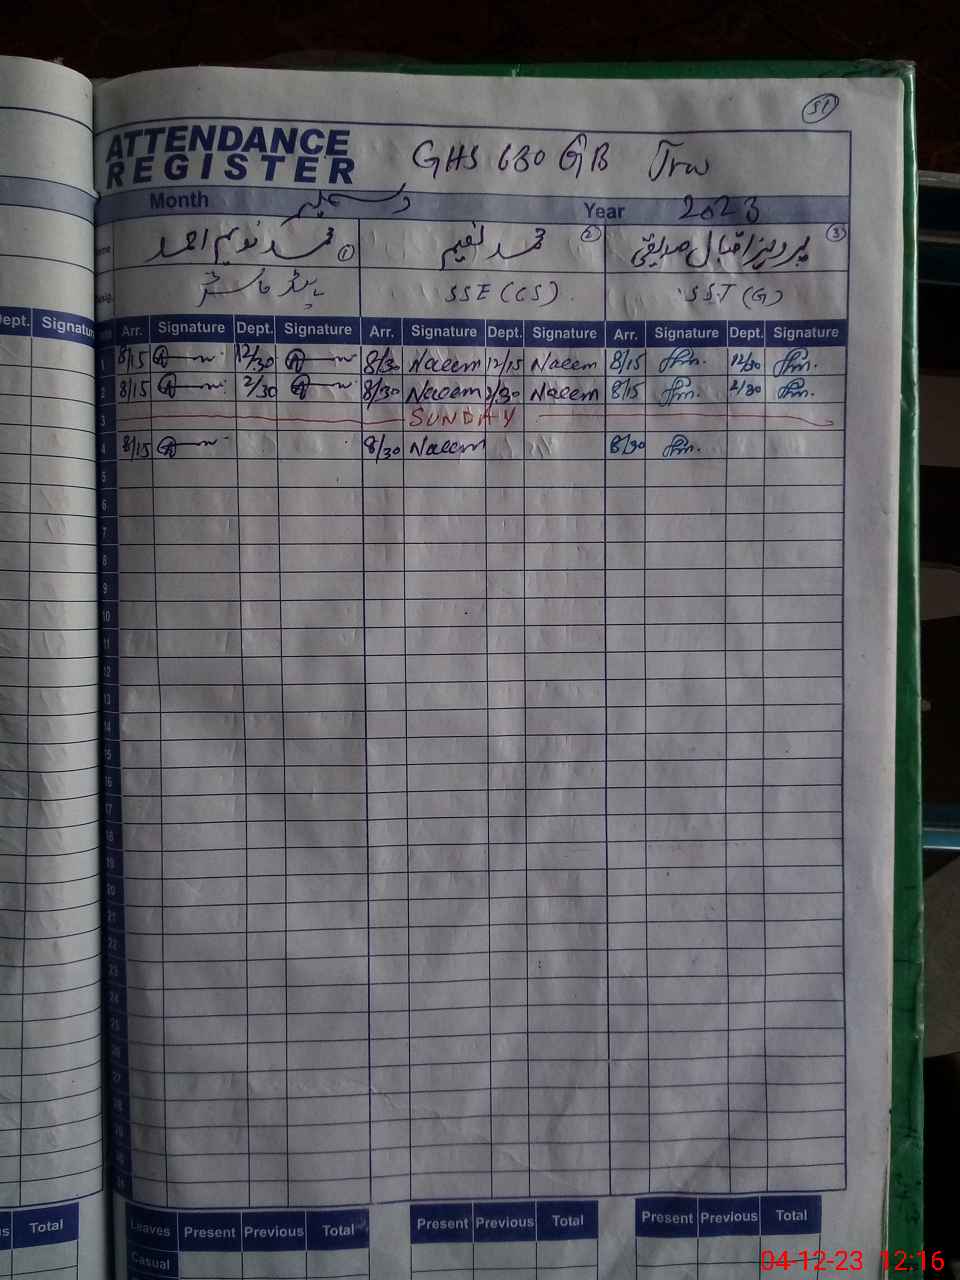 51
ATTENDANCE
REGISTER
GHS 630 GB
Month دسمبر Year 2023
محمد ندیم احمد 1 محمد نعیم 2 پرویز اقبال صدیقی 3
Desig. ہیڈ ماسٹر SSE (CS) SST (G)
Dept. Signature Arr. Signature Dept. Signature Arr. Signature Dept. Signature Arr. Signature Dept. Signature
1 8/15 12/30 8/30 Naeem 12/15 Naeem 8/15 12/30
2 8/15 2/30 8/30 Naeem 2/30 Naeem 8/15 2/30
3 SUNDAY
4 8/15 8/30 Naeem 8/30
5
6
7
8
9
10
11
12
13
14
15
16
17
18
19
20
21
22
23
24
25
26
27
28
29
30
31
Total Leaves Present Previous Total Present Previous Total Present Previous Total
Casual
04-12-23 12:16